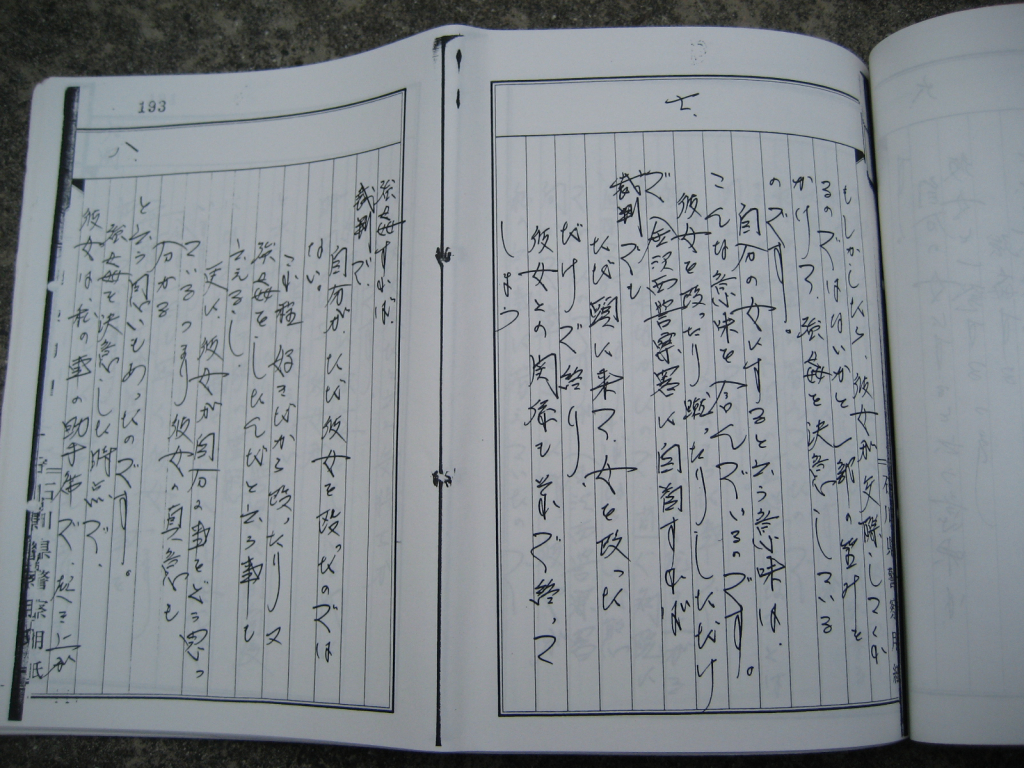 七、
もしかしたら、彼女が交際してくれ
るのではないかと一部の望みを
かけて、強姦を決意している
のです。
自分の女にすると云う意味は、
こんな意味を含んでいるのです。
彼女を殴ったり蹴ったりしただけ
で金沢西警察署に自首すれば
裁判でも
ただ頭に来て、女を殴った
だけで終り、
彼女との関係も並で終って
しまう
193
八、
強姦すれば、
裁判で、
自分が、ただ彼女を殴ったのでは
ない。
好きだから殴ったり又
強姦を、したんだと云う事も
云えるし、
更に、彼女が自分の事をどう思っ
ている つまり彼女の真意も
分かる
と云う思いもあったのです。
強姦を決意した時点で、
彼女は、私の車の助手席で、起き上が
石川県警察用紙